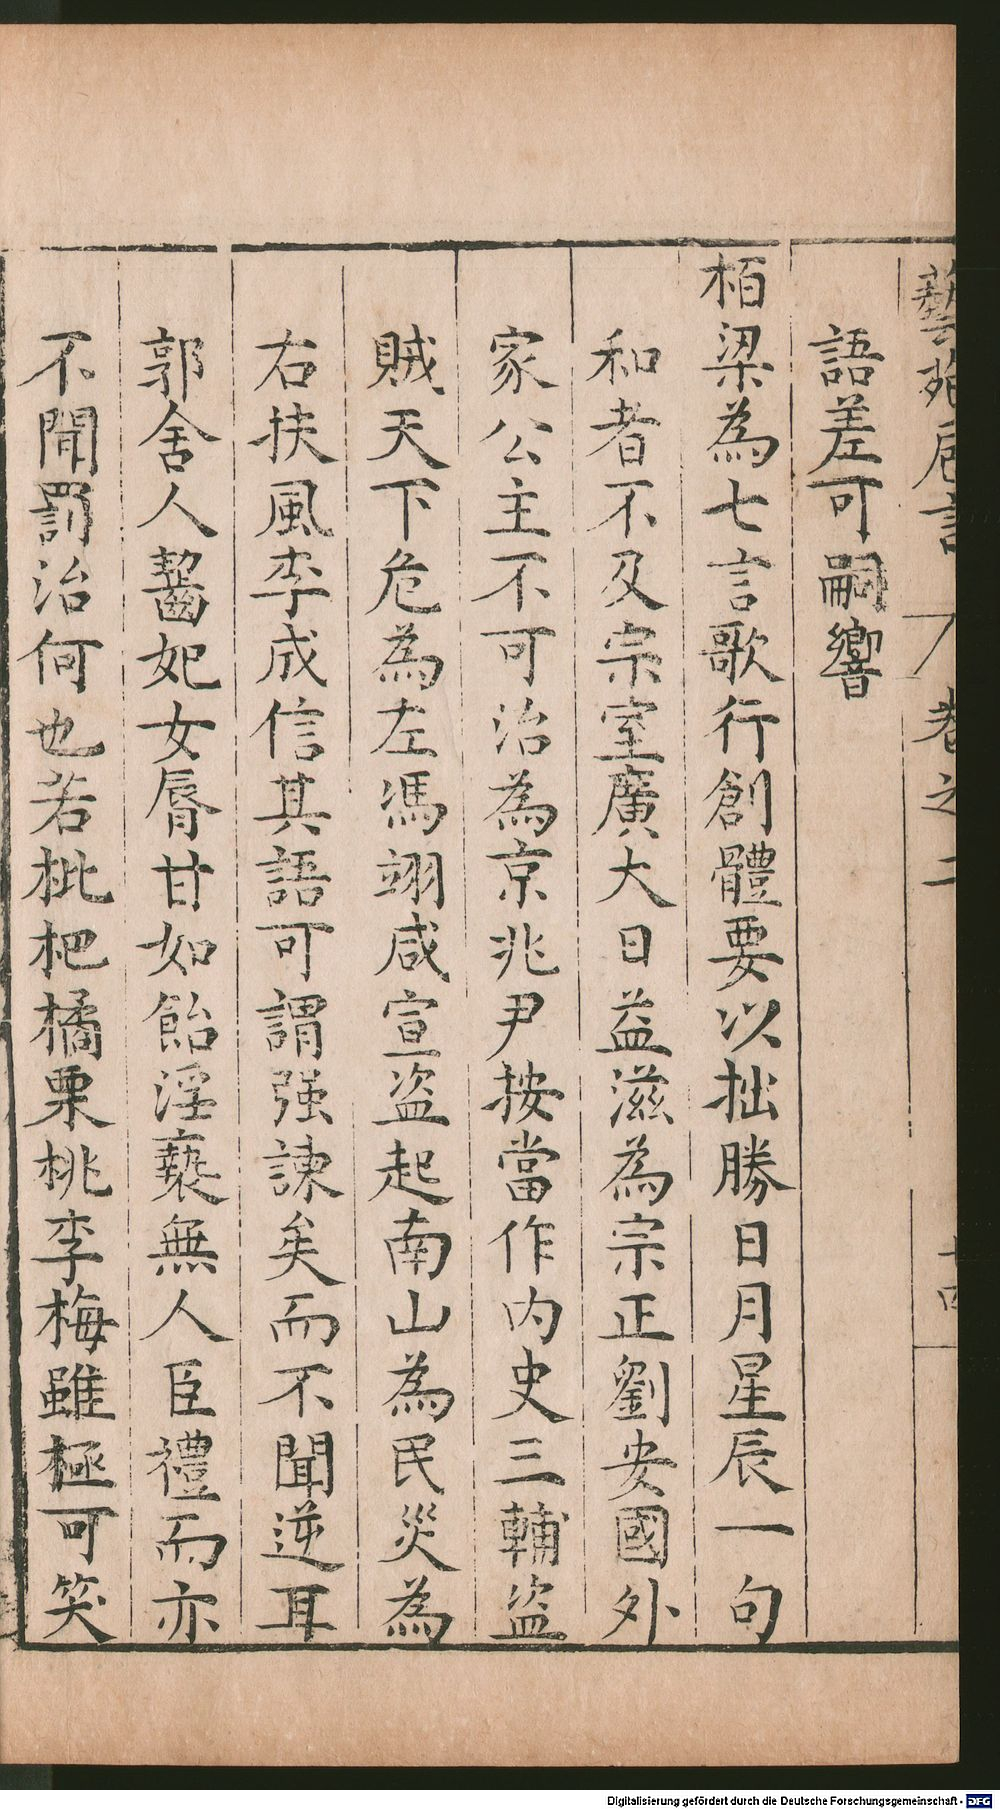 藝苑巵言 卷之二 十四
語差可嗣響
栢梁為七言歌行創體要以拙勝日月星辰一句
和者不及宗室廣大日益滋為宗正劉安國外
家公主不可治為京兆尹按當作内史三輔盜
賊天下危為左馮翊咸宣盗起南山為民災為
右扶風李成信其語可謂强諫矣而不聞逆耳
郭舍人齧妃女脣甘如飴淫䙝無人臣禮而亦
不聞罰治何也若枇杷橘栗桃李梅雖極可笑
Digitalisierung gefördert durch die Deutsche Forschungsgemeinschaft - DFG